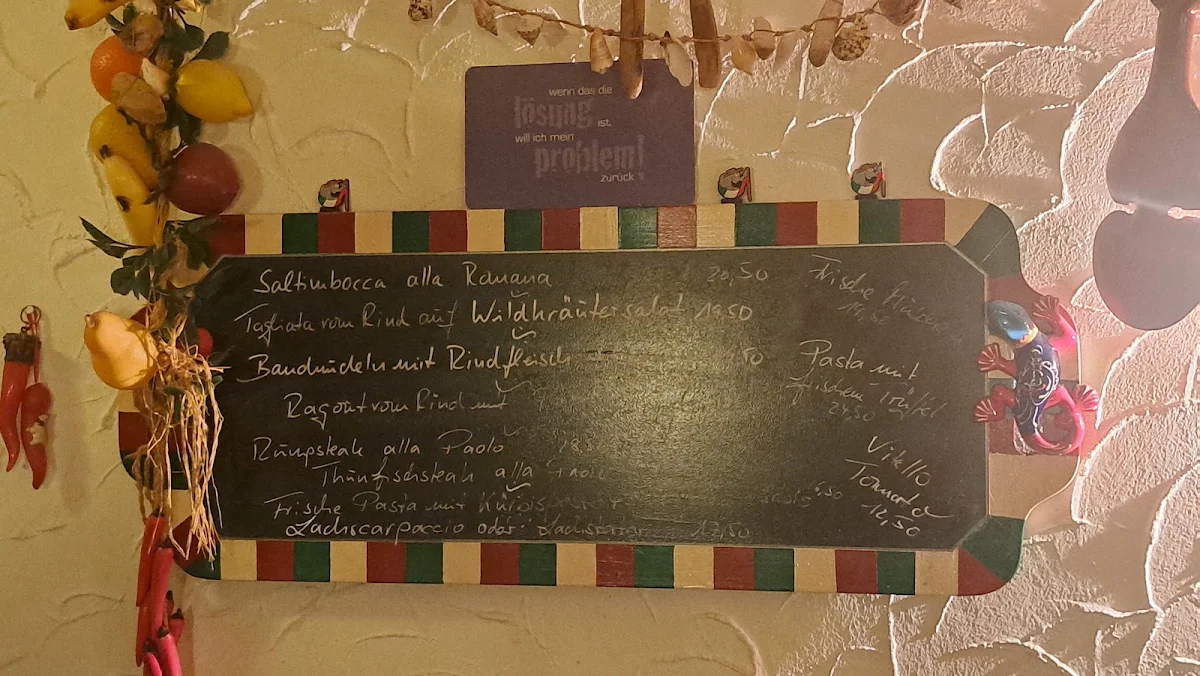 wenn das die
lösung ist.
will ich mein
problem!
zurück.
Saltimbocca alla Romana 20,50
Tagliata vom Rind auf Wildkräutersalat 19,50
Bandnudeln mit Rindfleisch 50
Ragout vom Rind mit
Rumpsteak alla Paolo 28,5
Thunfischsteak alla
Frische Pasta mit
Lachscarpaccio oder Lachstatar 13,50
Frische
19,50
Pasta mit
frischem Trüffel
24,50
Vitello
Tonnato
12,50